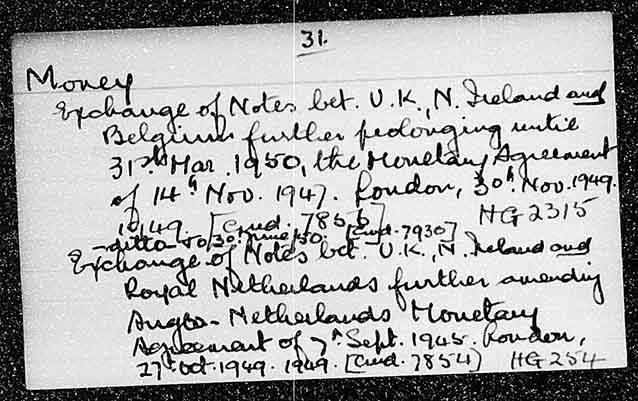 31.
Money
Exchange of Notes bet. U.K., N. Ireland and
Belgium further prolonging until
31st Mar. 1950, the Monetary Agreement
of 14th Nov. 1947. London, 30th Nov. 1949.
1949. [Cmd. 7856] HG2315
-ditto- to 30th June '50. [Cmd. 7930]
Exchange of Notes bet. U.K., N. Ireland and
Royal Netherlands further amending
Anglo-Netherlands Monetary
Agreement of 7th Sept. 1945. London,
27th Oct. 1949. 1949. [Cmd. 7854] HG254